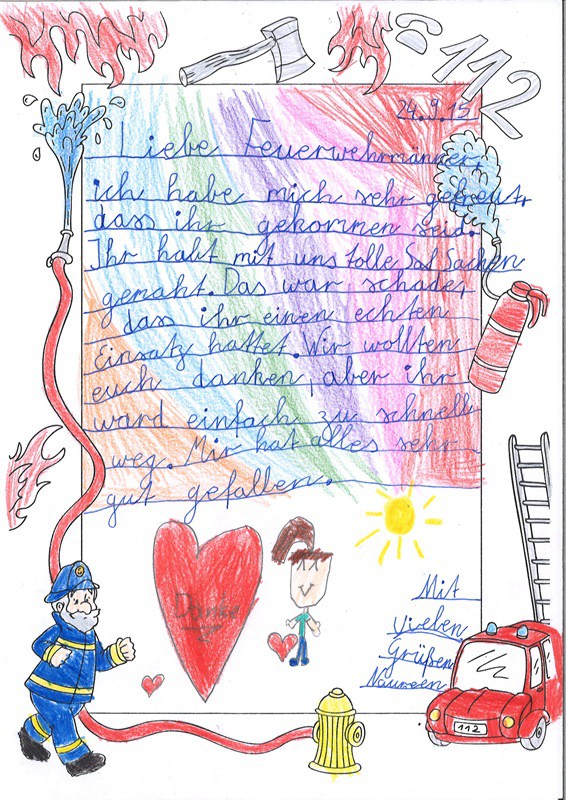 112
24.9.15
Liebe Feuerwehrmänner,
ich habe mich sehr gefreut,
dass ihr gekommen seid.
Ihr habt mit uns tolle Sachen
gemaht. Das war schade,
dass ihr einen echten
Einsatz hattet. Wir wollten
euch danken, aber ihr
ward einfach zu schnell
weg. Mir hat alles sehr
gut gefallen.
Danke
Mit
vielen
Grüßen
Naureen
112